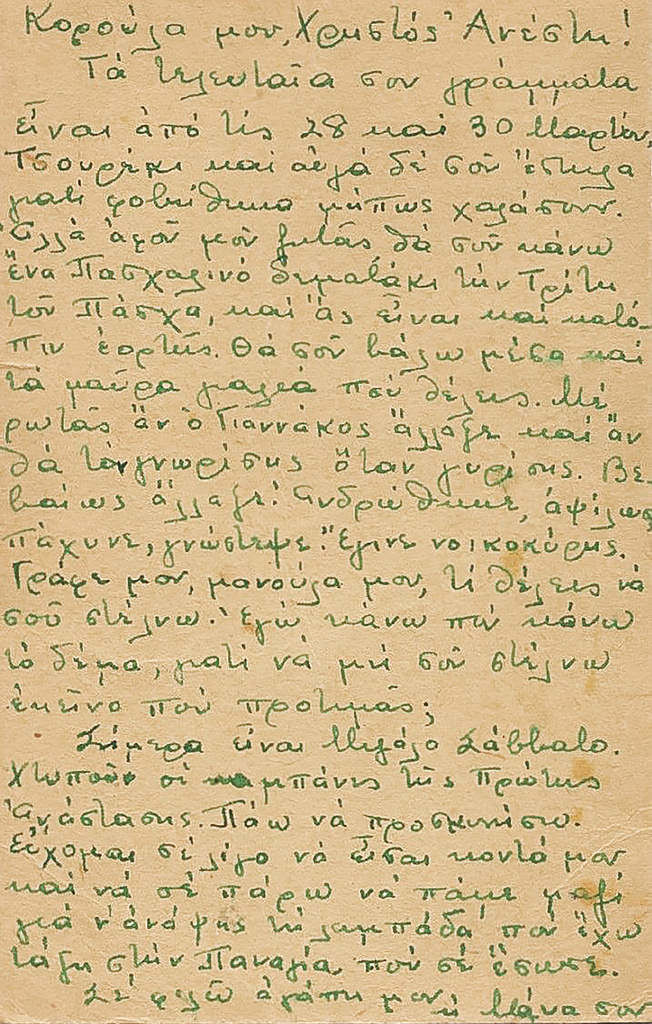 Κορούλα μου, Χρηστός Ἀνέστη!
Τά τελευταῖα σου γράμματα
εἶναι ἀπό τίς 28 καί 30 Μαρτίου,
Τσουρέκι καί αὐγά δέ σοῦ ἔστειλα
γιατί φοβήθηκα μήπως χαλάσουν.
Ἀλλά ἀφοῦ μοῦ ζητᾶς θά σοῦ κάνω
ἕνα Πασχαλινό δεματάκι τήν Τρίτη
τοῦ Πάσχα, καί ἄς εἶναι καί κατό-
πιν ἑορτῆς. Θά σοῦ βάλω μέσα καί
τά μαῦρα γυαλιά πού θέλεις. Μέ
ρωτᾶς ἄν ὁ Γιαννάκος ἄλλαξε καί ἄν
θά τόν γνωρίσης ὅταν γυρίσης. Βε-
βαίως ἄλλαξε! Ἀνδρώθηκε, ἀψίλωσε
πάχυνε, γνώστεψε. Ἔγινε νοικοκύρης.
Γράφε μου, μανούλα μου, τί θέλεις νά
σοῦ στέλνω. Ἐγώ κάνω πού κάνω
τό δέμα, γιατί νά μή σοῦ στέλνω
ἐκεῖνο πού προτιμᾶς;
Σήμερα εἶναι Μεγάλο Σάββατο.
Χτυποῦν οἱ καμπάνες τῆς Πρώτης
Ἀνάστασης. Πάω νά προσκυνήσω.
Εὔχομαι σέ λίγο νά εἶσαι κοντά μου
καί νά σέ πάρω νά πᾶμε μαζί
γιά ν' ἀνάψης τή λαμπάδα πού ἔχω
τάξη στήν Παναγία πού σέ ἔσωσε.
Σέ φιλῶ ἀγάπη μου
ἡ Μάνα σου